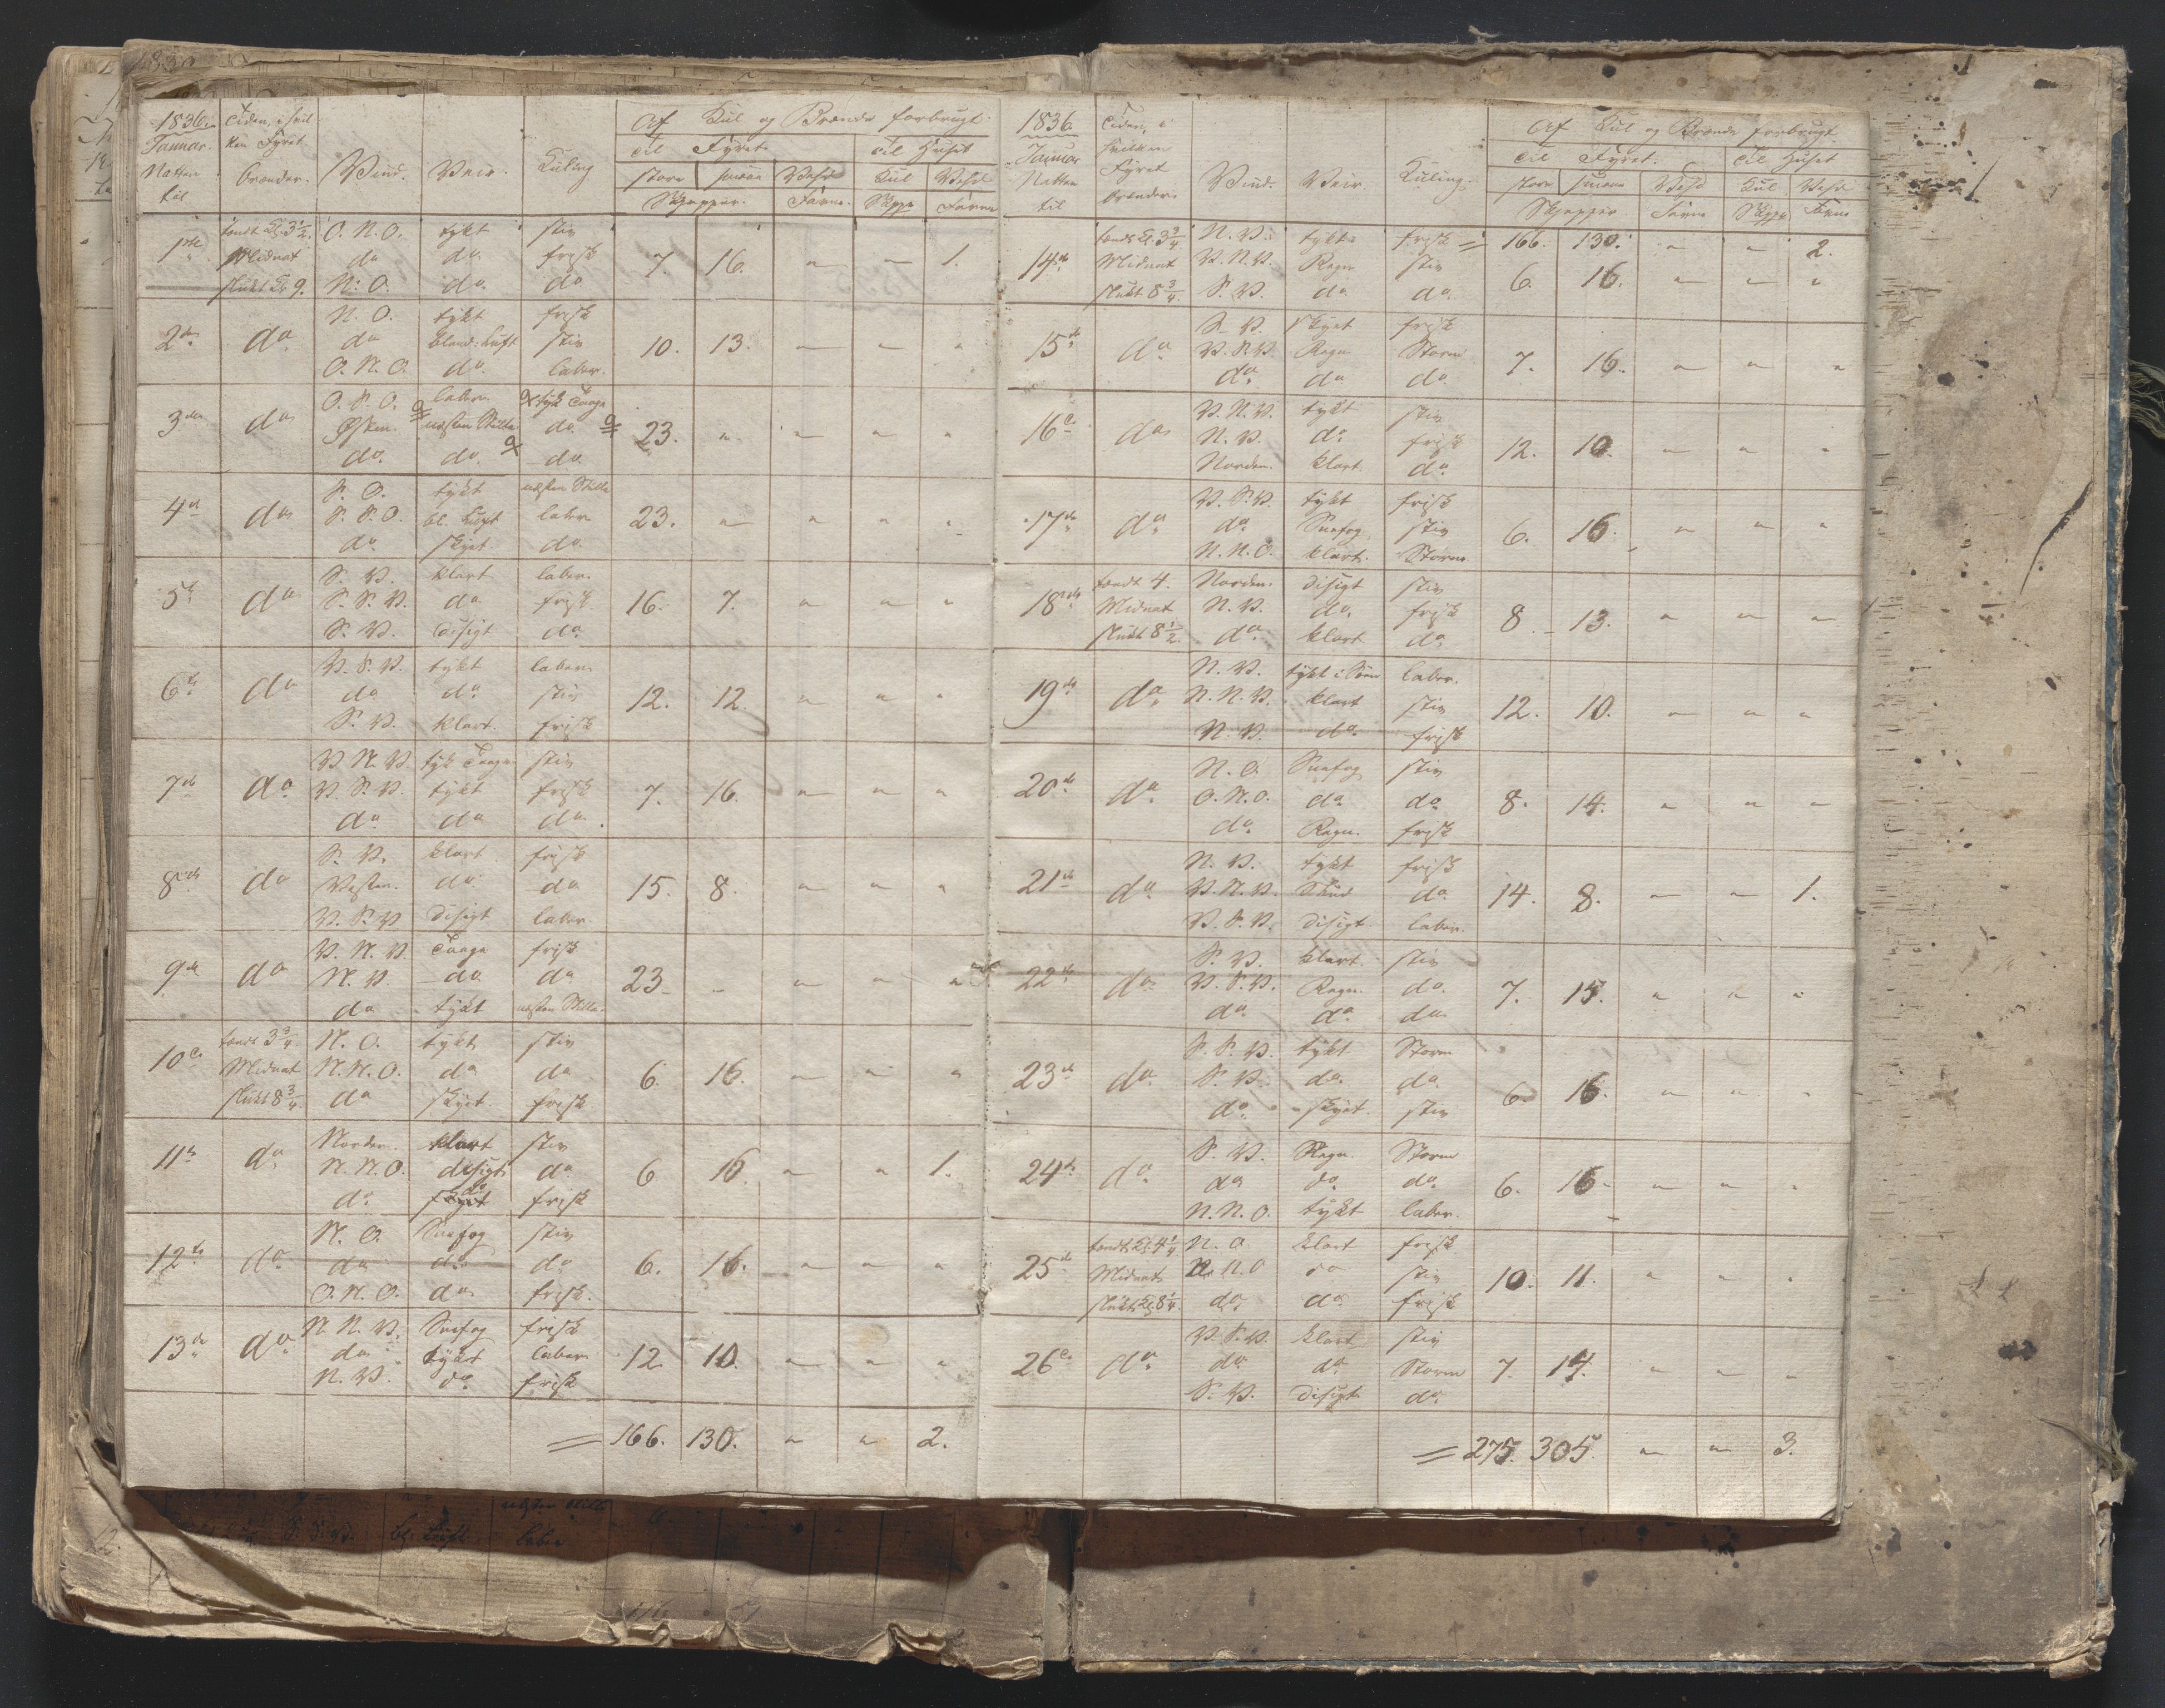 1836. Tiden, i hvil Af Kul og Brænde forbrugt
Januar. ken Fyret Til Fyret Til Huset
Natten brænder. Vind. Veir. Kuling store smaae Veed Kul Veed
til Skjepper. Favne. Skjpp Favne
tændt Kl. 3½. O. N. O. tykt stiv
1ste Midnat do do. frisk 7. 16. " " 1.
slukt Kl 9. N. O. do. do
N. O. tykt frisk
2den do do bland: Luft stiv 10. 13. " " "
O. N. O. do. laber.
O. S. O. laber tyk Taage
3die do Østen. næsten Stille do. 23. " " " "
do. do. do
S. O. tykt næsten Stille
4de do S. S. O. bl. Luft laber 23. " " " "
do. skyet. do
S. V. klart laber.
5te do S. S. V. do frisk 16. 7. " " "
S. V. disigt do.
V. S. V. tykt laber
6te do do do. stiv 12. 12. " " "
S. V. klart. frisk
V. N. V. tyk Taage stiv
7de do V. S. V. tykt frisk 7. 16. " " "
do do do.
S. V. klart frisk
8de do Vesten. do. do 15. 8. " " "
V. S. V disigt laber.
V. N. V. Taage frisk
9de do N. V. do do 23 " " " "
do tykt næsten Stille
tændt 3¾ N. O. tykt stiv
10de Midnat N. N. O. do do 6. 16. " " "
slukt 8¾. do skyet frisk
Norden. klart stiv
11te do. N. N. O. disigt do. 6 16 " " 1.
do. skyet frisk
N. O Sneefog stiv
12te do do do do 6. 16. " " "
O. N. O. do frisk.
N. N. V. Sneefog frisk
13de do do tykt laber 12. 10. " " "
N. V. do. frisk
= 166. 130. " " 2.
1836. Tiden, i Af Kul og Brænde forbrugt
Januar hvilken Til Fyret. Til Huset
Natten Fyret Vind. Veir. Kuling. store smaae Veed Kul Veed
til brænder. Skjepper Favne Skjpp Favne
tændt Kl 3¾ N. V. tykt frisk = 166. 130. " " 2.
14de Midnat V. N. V. Regn stiv 6. 16. " " "
slukt 8¾. S. V. do do.
S. V. skyet frisk
15de do V. S. V. Regn Storm 7. 16. " " "
do. do do
V. N. V. tykt stiv
16de do N. V. do frisk 12. 10. " " "
Norden. klart do.
V. S. V. tykt frisk
17de do do Sneefog stiv 6. 16. " " "
N. N. O. klart. Storm
tændt 4. Norden. disigt stiv
18de Midnat N. V. do. frisk 8 13. " " "
slukt 8½. do. klart do.
N. V. laber.
19de do N. N. V. klart stiv 12. 10. " " "
N. V. do. frisk
N. O. Sneefog stiv
20de do O. N. O. do do. 8. 14. " " "
do. Regn. frisk
N. V. tykt frisk
21de do V. N. V. do. 14. 8. " " 1.
V. S. V. disigt laber.
S. V. klart stiv
22de do V. S. V. Regn. do. 7. 15. " " "
do do do
S. S. V. tykt Storm
23de do S. V. do. do. 6. 16. " " "
do. skyet. stiv
S. V. Regn. Storm
24de do. do do. do. 6. 16. " " "
N. N. O. tykt laber.
tændt Kl. 4¼ N. O klart frisk
25de Midnat N. N. O do stiv 10. 11. " " "
slukt Kl 8¼. do. do frisk
V. S. V. klart stiv
26de do do. do. Storm 7. 14. " " "
S. V. disigt do.
= 275. 305 " " 3.